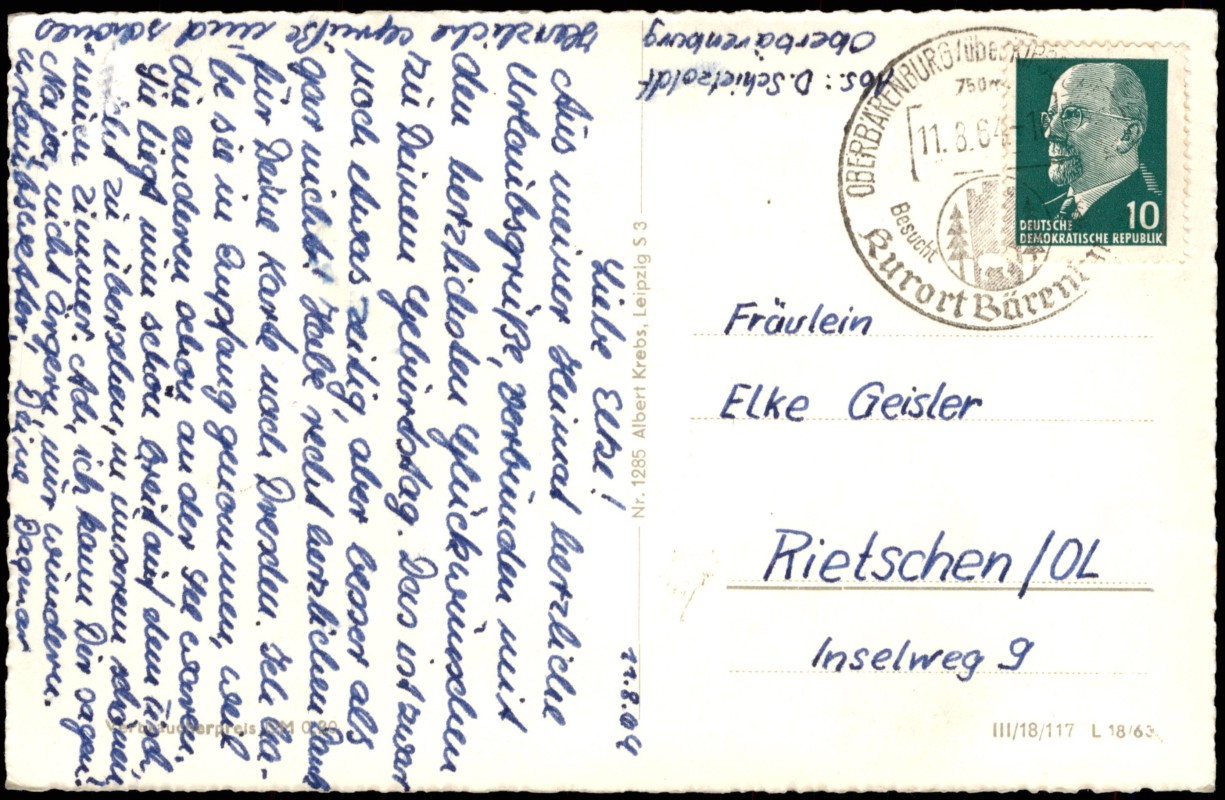 Abs.: D. Schietzoldt
Oberbärenburg
11.8.64
Liebe Elke!
Aus meiner Heimat herzliche
Urlaubsgrüße, verbunden mit
den herzlichsten Glückwünschen
zu Deinem Geburtstag. Das ist zwar
noch etwas zeitig, aber besser als
gar nicht. Habe recht herzlichen Dank
für Deine Karte nach Dresden. Ich ha-
be sie in Empfang genommen, weil
die anderen schon an der See waren.
Sie liegt nun schön breit auf dem Tisch,
nicht zu übersehen, in unserem schönen
neuen Zimmer. Ach, ich kann Dir sagen!
Na ja, nicht ärgern nur wundern.
Herzliche Grüße und schönes
Urlaubswetter, Deine Dagmar
Nr. 1285 Albert Krebs, Leipzig S 3
Verbraucherpreis DM 0,20
OBERBÄRENBURG
750m
11. 8. 64
Besucht
Kurort
DEUTSCHE
DEMOKRATISCHE REPUBLIK
10
Fräulein
Elke Geisler
Rietschen/OL
Inselweg 9
III/18/117 L 18/63